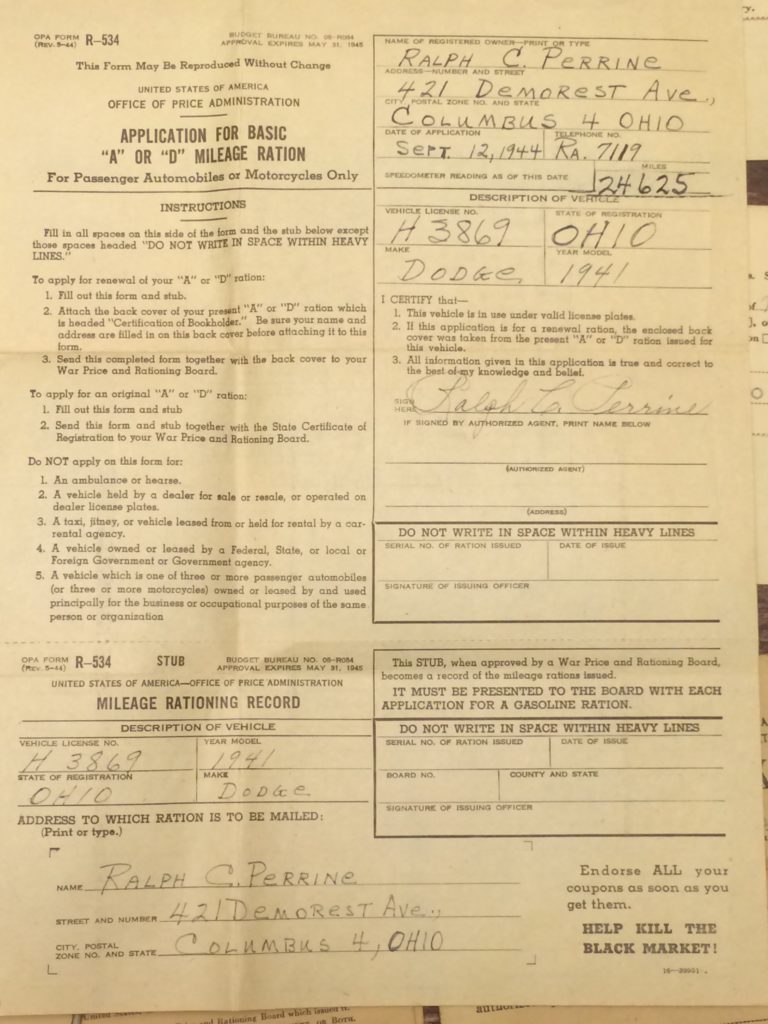 OPA FORM R-534
(REV. 5-44)
BUDGET BUREAU NO. 08-R084
APPROVAL EXPIRES MAY 31, 1945
This Form May Be Reproduced Without Change
UNITED STATES OF AMERICA
OFFICE OF PRICE ADMINISTRATION
APPLICATION FOR BASIC
"A" OR "D" MILEAGE RATION
For Passenger Automobiles or Motorcycles Only
INSTRUCTIONS
Fill in all spaces on this side of the form and the stub below except
those spaces headed "DO NOT WRITE IN SPACE WITHIN HEAVY
LINES."
To apply for renewal of your "A" or "D" ration:
1. Fill out this form and stub.
2. Attach the back cover of your present "A" or "D" ration which
is headed "Certification of Bookholder." Be sure your name and
address are filled in on this back cover before attaching it to this
form.
3. Send this completed form together with the back cover to your
War Price and Rationing Board.
To apply for an original "A" or "D" ration:
1. Fill out this form and stub
2. Send this form and stub together with the State Certificate of
Registration to your War Price and Rationing Board.
Do NOT apply on this form for:
1. An ambulance or hearse.
2. A vehicle held by a dealer for sale or resale, or operated on
dealer license plates.
3. A taxi, jitney, or vehicle leased from or held for rental by a car-
rental agency.
4. A vehicle owned or leased by a Federal, State, or local or
Foreign Government or Government agency.
5. A vehicle which is one of three or more passenger automobiles
(or three or more motorcycles) owned or leased by and used
principally for the business or occupational purposes of the same
person or organization
NAME OF REGISTERED OWNER—PRINT OR TYPE
RALPH C. PERRINE
ADDRESS—NUMBER AND STREET
421 DEMOREST AVE.,
CITY, POSTAL ZONE NO. AND STATE
COLUMBUS 4 OHIO
DATE OF APPLICATION TELEPHONE NO.
SEPT. 12, 1944 RA. 7119
MILES
SPEEDOMETER READING AS OF THIS DATE 24625
DESCRIPTION OF VEHICLE
VEHICLE LICENSE NO. STATE OF REGISTRATION
H 3869 OHIO
MAKE YEAR MODEL
DODGE 1941
I CERTIFY that—
1. This vehicle is in use under valid license plates.
2. If this application is for a renewal ration, the enclosed back
cover was taken from the present "A" or "D" ration issued for
this vehicle.
3. All information given in this application is true and correct to
the best of my knowledge and belief.
SIGN HERE Ralph C. Perrine
IF SIGNED BY AUTHORIZED AGENT, PRINT NAME BELOW
(AUTHORIZED AGENT)
(ADDRESS)
DO NOT WRITE IN SPACE WITHIN HEAVY LINES
SERIAL NO. OF RATION ISSUED DATE OF ISSUE
SIGNATURE OF ISSUING OFFICER
OPA FORM R-534 STUB
(REV. 5-44)
BUDGET BUREAU NO. 08-R084
APPROVAL EXPIRES MAY 31, 1945
UNITED STATES OF AMERICA—OFFICE OF PRICE ADMINISTRATION
MILEAGE RATIONING RECORD
DESCRIPTION OF VEHICLE
VEHICLE LICENSE NO. YEAR MODEL
H 3869 1941
STATE OF REGISTRATION MAKE
OHIO DODGE
ADDRESS TO WHICH RATION IS TO BE MAILED:
(Print or type.)
This STUB, when approved by a War Price and Rationing Board,
becomes a record of the mileage rations issued.
IT MUST BE PRESENTED TO THE BOARD WITH EACH
APPLICATION FOR A GASOLINE RATION.
DO NOT WRITE IN SPACE WITHIN HEAVY LINES
SERIAL NO. OF RATION ISSUED DATE OF ISSUE
BOARD NO. COUNTY AND STATE
SIGNATURE OF ISSUING OFFICER
NAME RALPH C. PERRINE
STREET AND NUMBER 421 DEMOREST AVE.,
CITY, POSTAL
ZONE NO. AND STATE COLUMBUS 4, OHIO
Endorse ALL your
coupons as soon as you
get them.
HELP KILL THE
BLACK MARKET!
and Rationing Board which issued it.